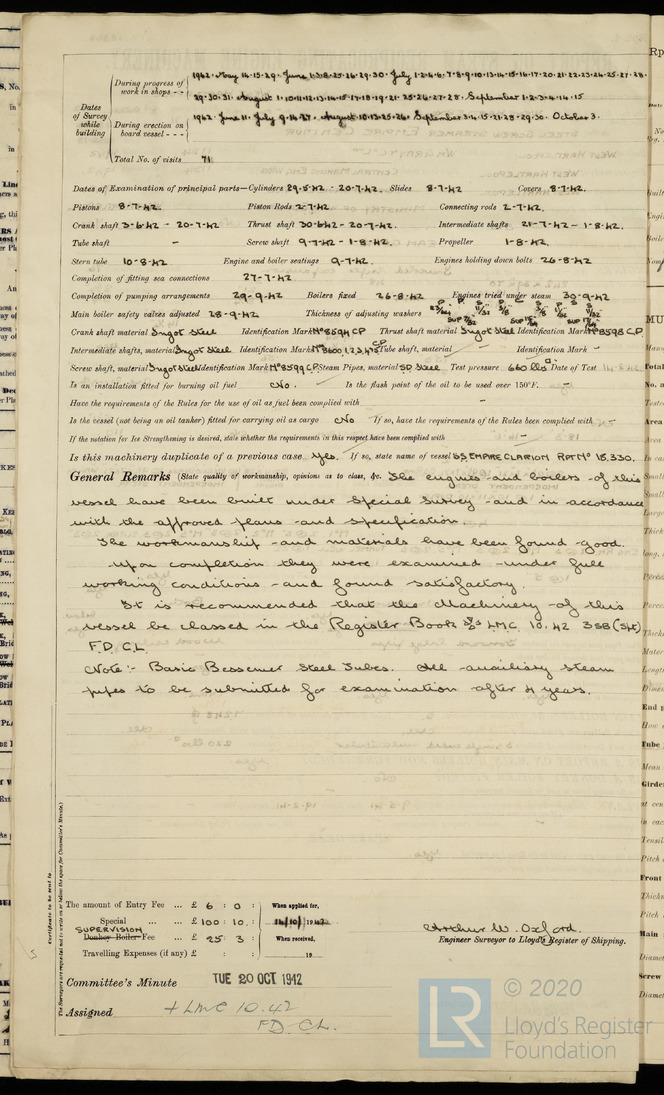 Dates of Survey while building
During progress of work in shops - -
1942. May 14.15.29. June 1.3.8.25.26.29.30. July 1.2.4.6.7.8.9.10.13.14.15.16.17.20.21.22.23.24.25.27.28.
29.30.31. August 1.10.11.12.13.14.15.17.18.19.21.25.26.27.28. September 1.2.3.4.14.15
During erection on board vessel - - -
1942 June 11. July 9.14.27. August 10.13.25.26. September 3.4.15.21.28.29.30. October 3.
Total No. of visits 71
Dates of Examination of principal parts—Cylinders 29.5.42 - 20.7.42. Slides 8.7.42 Covers 8.7.42.
Pistons 8.7.42. Piston Rods 2.7.42 Connecting rods 2.7.42.
Crank shaft 3.6.42 - 20.7.42 Thrust shaft 30.6.42 - 20.7.42. Intermediate shafts 21.7.42 - 1.8.42.
Tube shaft - Screw shaft 9.7.42 - 1.8.42. Propeller 1.8.42.
Stern tube 10.8.42 Engine and boiler seatings 9.7.42. Engines holding down bolts 26.8.42
Completion of fitting sea connections 27.7.42
Completion of pumping arrangements 29.9.42 Boilers fixed 26.8.42 Engines tried under steam 30.9.42
Main boiler safety valves adjusted 28.9.42 Thickness of adjusting washers
Crank shaft material Ingot Steel Identification Mark No 8594 CP Thrust shaft material Ingot Steel Identification Mark No 8598 C.P.
Intermediate shafts, material Ingot Steel Identification Marks No 8600.1.2.3.4.5 CP Tube shaft, material - Identification Mark -
Screw shaft, material Ingot Steel Identification Mark No 8599 C.P. Steam Pipes, material SD Steel Test pressure 660 lbs □" Date of Test
Is an installation fitted for burning oil fuel No. Is the flash point of the oil to be used over 150°F. -
Have the requirements of the Rules for the use of oil as fuel been complied with -
Is the vessel (not being an oil tanker) fitted for carrying oil as cargo No If so, have the requirements of the Rules been complied with -
If the notation for Ice Strengthening is desired, state whether the requirements in this respect have been complied with -
Is this machinery duplicate of a previous case Yes. If so, state name of vessel SS EMPIRE CLARION RPT No 15,330.
General Remarks (State quality of workmanship, opinions as to class, &c. The engines and boilers of this
vessel have been built under Special Survey and in accordance
with the approved plans and specification.
The workmanship and materials have been found good.
Upon completion they were examined under full
working conditions and found satisfactory.
It is recommended that the Machinery of this
vessel be classed in the Register Book LMC. 10.42 3SB (Spt)
F.D. C.L.
Note:- Basic Bessemer Steel Tubes. All auxiliary steam
pipes to be submitted for examination after 4 years.
Certificate to be sent to
The Surveyors are requested not to write on or below the space for Committee's Minute.)
The amount of Entry Fee ... £ 6 : 0 : When applied for,
Special ... ... £ 100 : 10 : 14/10/1942
SUPERVISION
Donkey Boiler Fee ... £ 25 : 3 : When received,
Travelling Expenses (if any) £ : : 19
Arthur W. Oxford.
Engineer Surveyor to Lloyd's Register of Shipping.
Committee's Minute TUE 20 OCT 1942
Assigned + LMC 10.42
FD. CL.
LR
© 2020
Lloyd's Register
Foundation